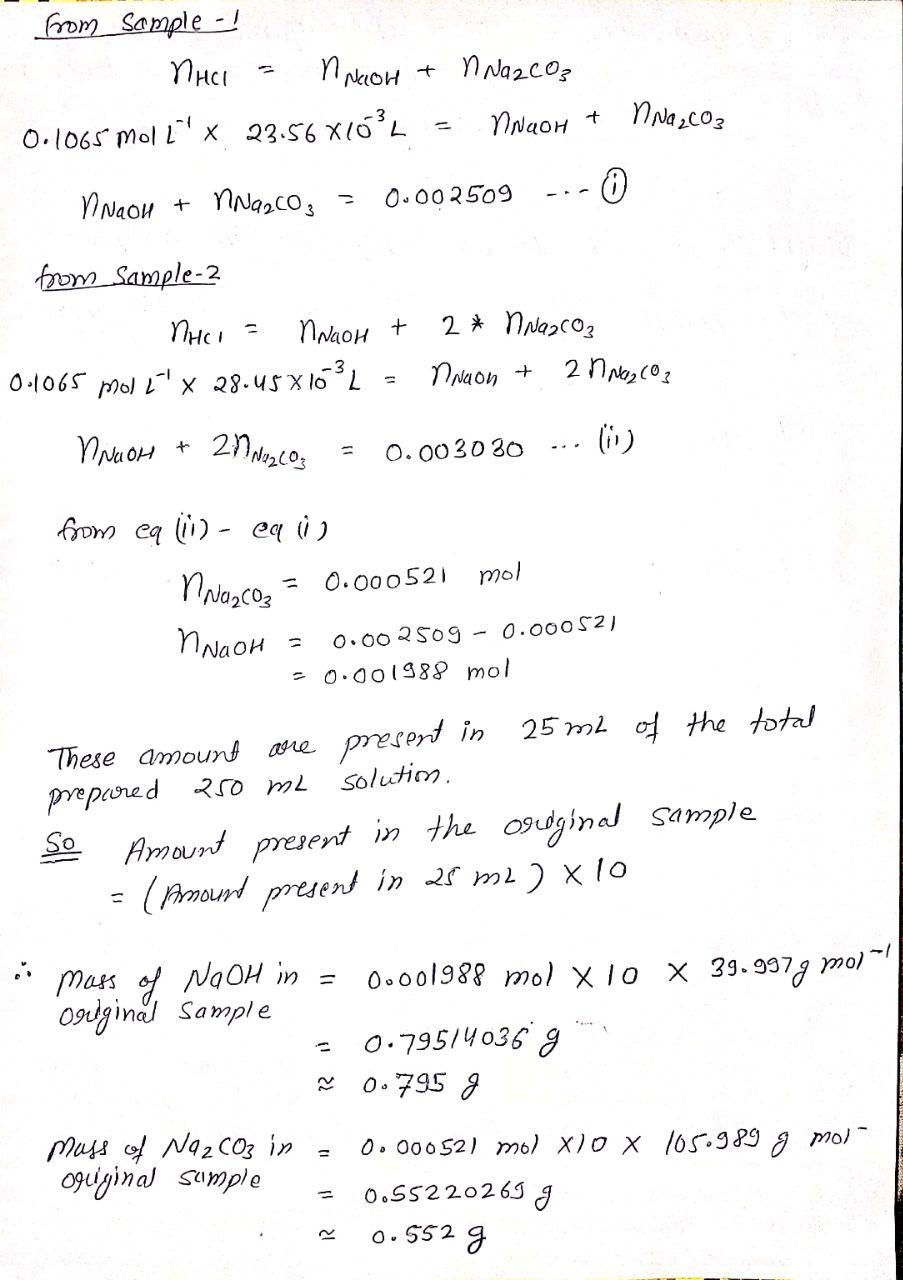 from Sample-1
nHCl = nNaOH + nNa₂CO₃
0.1065 mol L⁻¹ × 23.56 × 10⁻³ L = nNaOH + nNa₂CO₃
nNaOH + nNa₂CO₃ = 0.002509 ---- ⓘ
from Sample-2
nHCl = nNaOH + 2 * nNa₂CO₃
0.1065 mol L⁻¹ × 28.45 × 10⁻³ L = nNaOH + 2nNa₂CO₃
nNaOH + 2nNa₂CO₃ = 0.003030 ... (ii)
from eq (ii) - eq (i)
nNa₂CO₃ = 0.000521 mol
nNaOH = 0.002509 - 0.000521
= 0.001988 mol
These amount are present in 25 mL of the total
prepared 250 mL solution.
So Amount present in the original sample
= (Amount present in 25 mL) × 10
∴ Mass of NaOH in = 0.001988 mol × 10 × 39.997 g mol⁻¹
original Sample
= 0.79514036 g
≈ 0.795 g
Mass of Na₂CO₃ in = 0.000521 mol × 10 × 105.989 g mol⁻
original sample
= 0.55220269 g
≈ 0.552 g